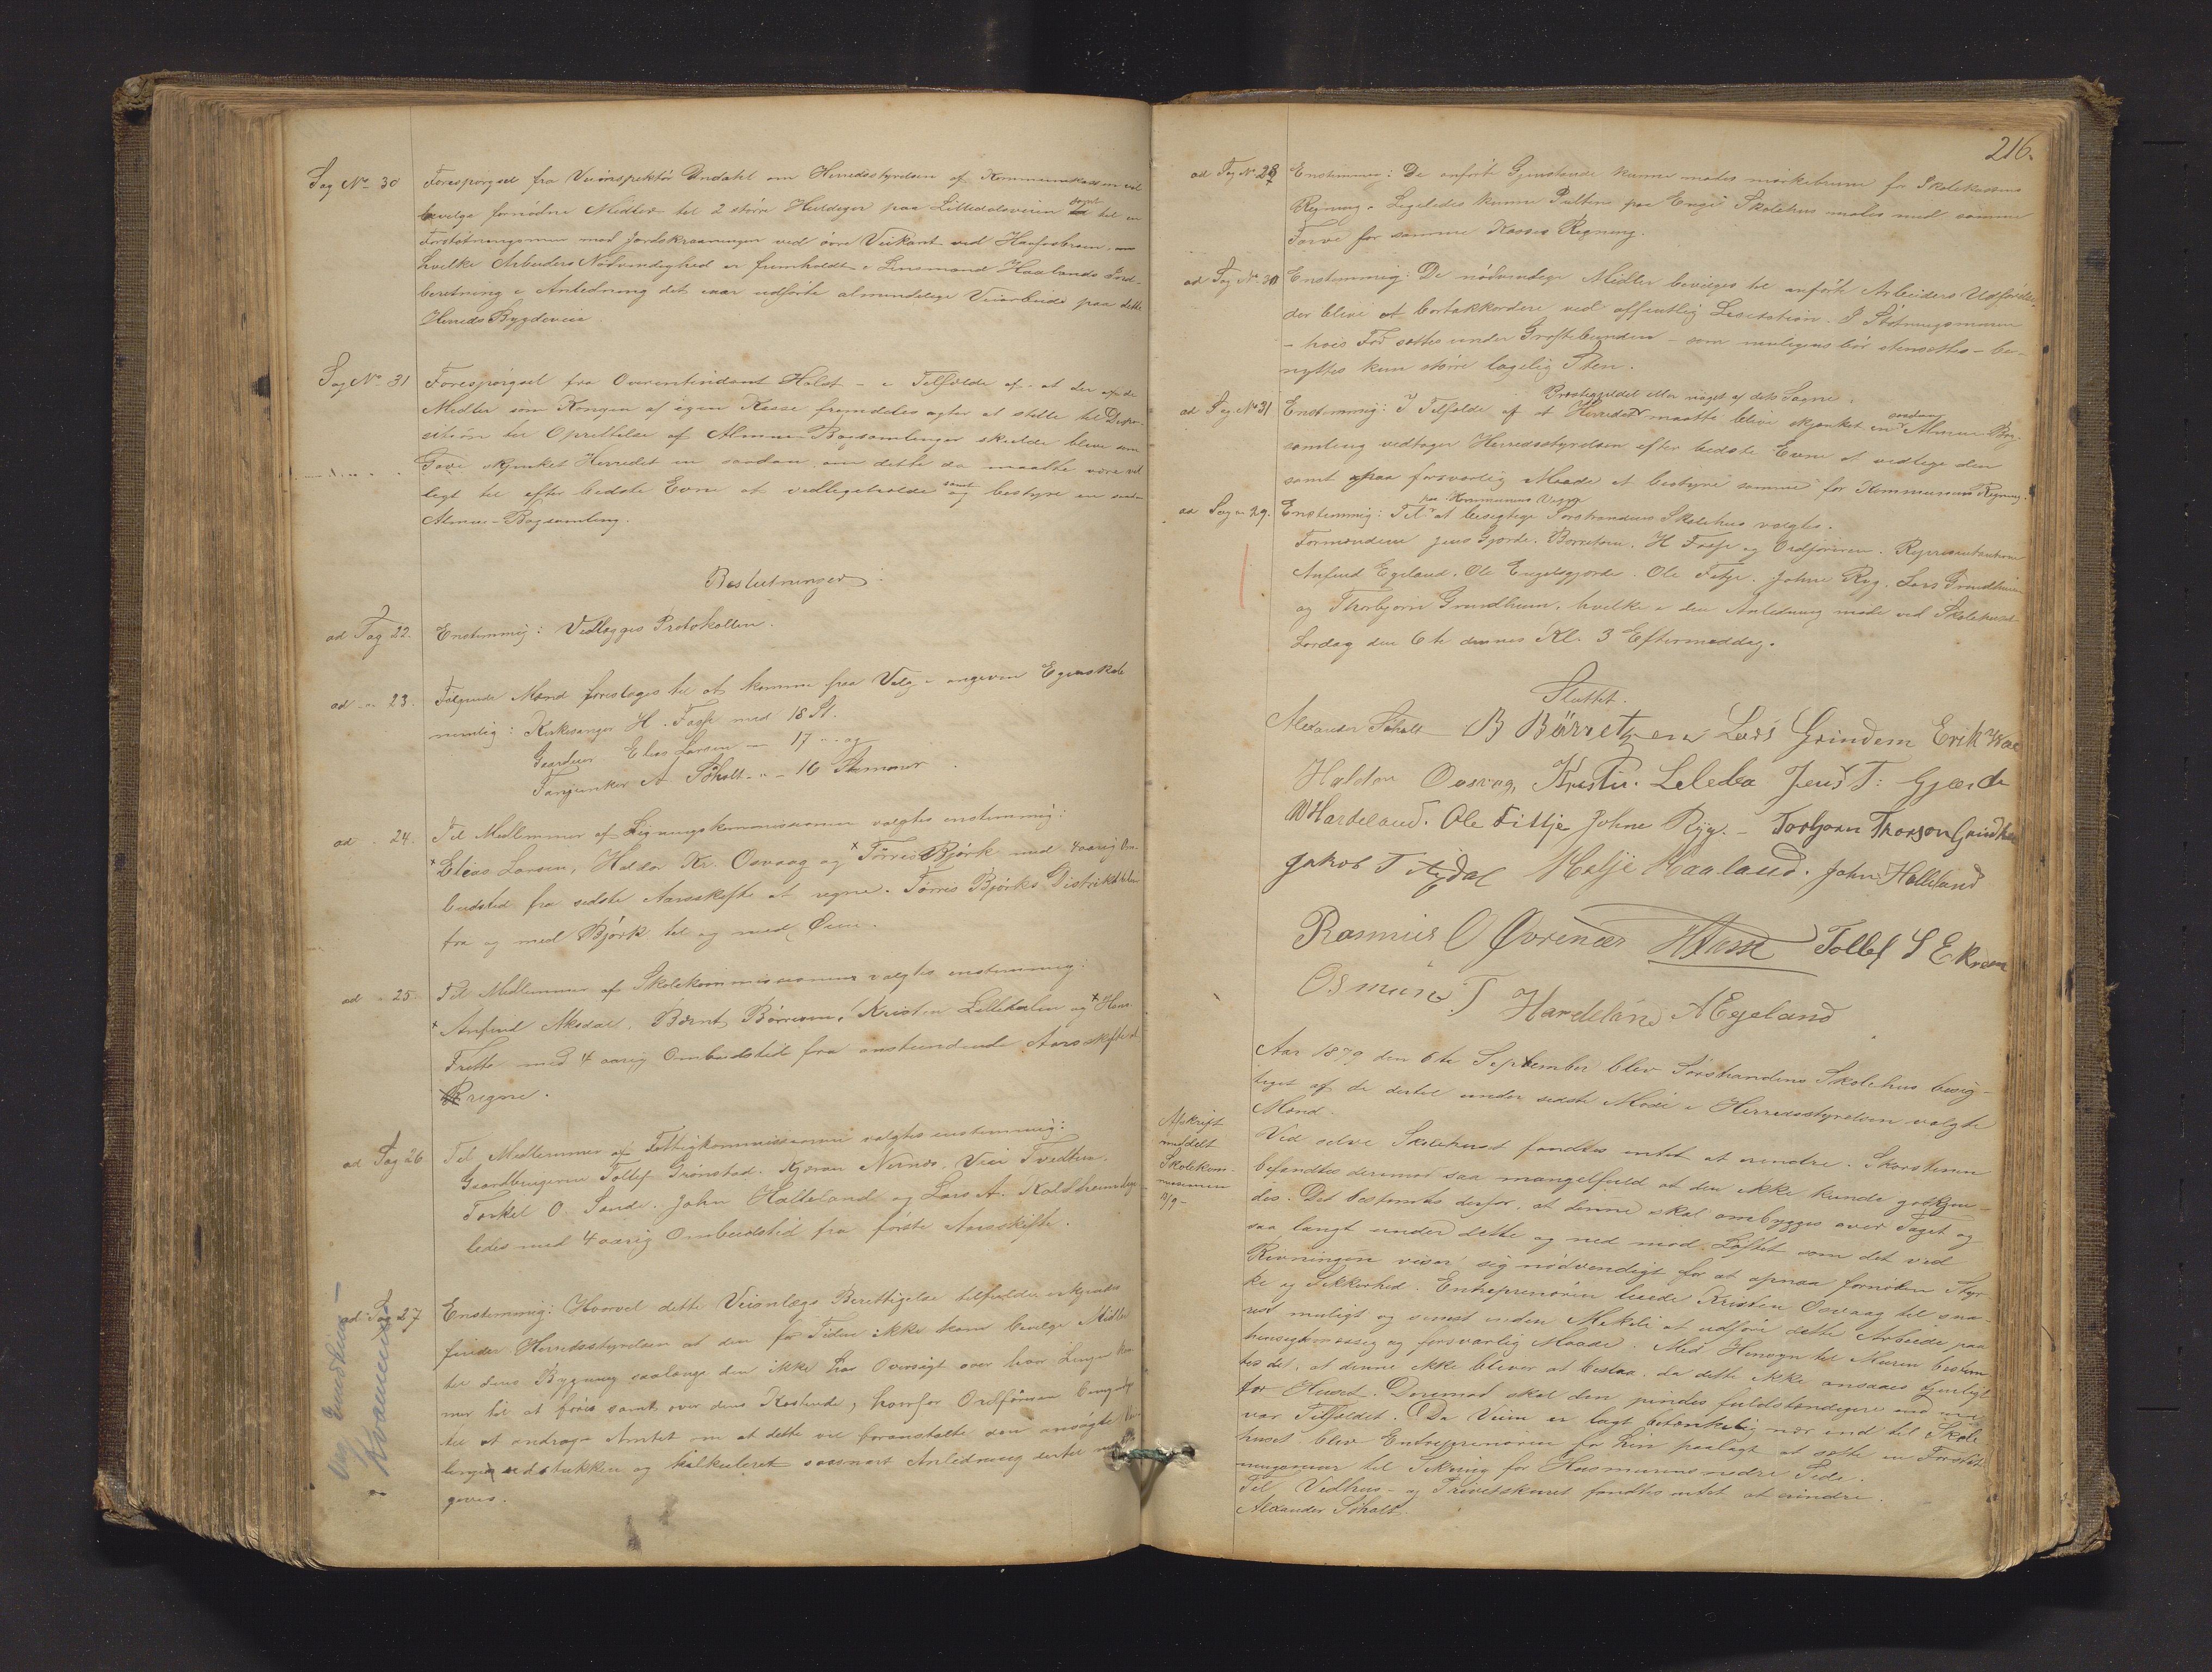 Sag No 30 Forespørgsel fra Veiinspektør Undahl om Herredsstyrelsen af Kommunekassen vil
bevilge fornødne Midler til 2 større Huldiger paa Lilledalsveien samt til en
Forstøtningsmur med Jordskraaninger ved øvre Veikant ved
hvilke Arbeiders Nødvendighed er fremholdt i Lensmand Haalands Ind-
beretning i Anledning det iaar udførte almindelige Veiarbeide paa dette
Herreds Bygdeveie
Sag No 31 Forespørgsel fra Overintendant Holst – i Tilfælde af at der af de
Midler som Kongen af egen Kasse fremdeles agter at stille til Dispo-
sition til Oprettelse af Almue-Bogsamlinger skulde blive som
Gave skjænket Herredet en saadan, om dette da maatte være vil-
ligt til efter bedste Evne at vedligeholde samt og bestyre en saadan
Almue-Bogsamling.
Beslutninger:
ad Sag 22. Enstemmig: Vedlægges Protokollen.
ad " 23. Følgende Mænd foreslages til at komme paa Valg i angiven Egenskab
nemlig: Kirkesanger H. Fasse med 18 St.
Gaardmr Elias Larsen — 17 " og
Fanejunker A Søholt " — 16 Stemmer.
ad " 24. Til Medlemmer af Ligningskommissionen valgtes enstemmig:
Elias Larsen, Haldor Kr. Osvaag og Tørris Bjørk med 4aarig Om-
budstid fra sidste Aarsskifte at regne. Tørris Bjørks Distrikt bliver
fra og med Bjørk til og med Øien.
ad " 25. Til Medlemmer af Skolekommissionen valgtes enstemmig:
Anfind Aksdal, Bernt Børretzen, Kristen Lilledalen og Hans
Frette med 4 aarig Ombudstid fra anstundende Aarsskifte at
regne.
ad Sag 26 Til Medlemmer af Fattigkommissionen valgtes enstemmig:
Gaardbrugerne Tollef Grønstad. Kjøran Nernæs. Vier Tvedten.
Torkel O. Sande. John Halleland og Lars A. Kaldheim lige-
ledes med 4 aarig Ombudstid fra første Aarsskifte.
ad Sag 27 Enstemmig: Hvorvel dette Veianlægs Berettigelse tilfulde erkjendes
finder Herredsstyrelsen at den for Tiden ikke kan bevilge Midler
til dens Bygning saalænge den ikke har Oversigt over hvor Linjen kom-
mer til at føres samt over dens Kostende, hvorfor Ordføreren bemyndiges
til at andrage Amtet om at dette vil foranstalte den ansøgte
udstukken og kalkuleret saasnart Anledning dertil
gives.
Vei Grindheim –
Kvamene
216.
ad Sag No 28 Enstemmig: De anførte Gjenstande kunne males mørkebrune for Skolekassens
Regning. Ligeledes kunne Pultene paa Enge Skolehus males med samme
Farve for samme Kasses Regning.
ad Sag No 30 Enstemmig: De nødvendige Midler bevilges til anførte Arbeiders Udførelse,
der blive at bortakkordere ved offentlig Licitation. I Støtningsmuren
– hvis Fod sættes under Grøftebunden – som muligens bør stensættes – be-
nyttes kun større lagelig Sten.
Præstegjeldet eller noget af dets Sogne
ad Sag No 31 Enstemmig: I Tilfælde af at Herredet maatte blive skjænket en saadan Almue Bog-
samling vedtager Herredsstyrelsen efter bedste Evne at vedlige den
samt paa forsvarlig Maade at bestyre samme for Kommunens Regning.
paa Kommunens Vegne
ad Sag " 29. Enstemmig: Til at besigtige Sørstrandens Skolehus valgtes.
Formændene Jens Gjærde. Børretzen. H Fasse og Ordføreren. Repræsentanterne
Anfind Egeland. Ole Engelsgjerde. Ole Fitje. Johne Ryg. Lars Grindheim
og Thorbjørn Grindheim, hvilke i den Anledning møde ved Skolehuset
Lørdag den 6te dennes Kl. 3 Eftermiddag.
Sluttet.
Alexander Søholt B Börretzen Lars Grindem Erik Wae
Haldor Oosvog, Kristn. Leledea Jens T: Gjærde
W Hardeland. Ole Fittje Johne Ryg. – Torbjørn Thorson Grindhei
Jakob T Aydal Helje Haaland. John Halleland
Rasmus O Øvrenæs HFasse Tollef S Ekrem
Osmund T Hardeland A Egeland
Aar 1879 den 6te September blev Sørstrandens Skolehus besig-
tiget af de dertil under sidste Møde i Herredsstyrelsen valgte
Mænd.
Afskrift
meddelt
Skolekom-
missionen
Ved selve Skolehuset fandtes intet at erindre. Skorstenen
befandtes derimod saa mangelfuld at den ikke kunde godkjen-
des. Det bestemtes derfor, at denne skal ombygges over Taget og
saa langt under dette og ned mod Loftet som det ved
Rivningen viser sig nødvendigt for at opnaa fornøden Styr-
ke og Sikkerhed. Entreprenøren lovede Kristen Osvaag til sna-
rest muligt og senest inden Mikeli at udføre dette Arbeide paa
hensigtsmæssig og forsvarlig Maade. Med Hensyn til Muren bestem-
tes det, at denne ikke bliver at bestaa, da dette ikke ansaaes tjenligt
for Huset. Derimod skal den pindes fuldstændigere end nu
var Tilfældet. Da Veien er lagt betænkelig nær ind til Skole-
huset blev Entreprenøren for Lin paalagt at sætte en Forstøt-
ningsmur til Sikring for Husmurens nedre Side.
Til Vedhus- og Privetskuret fandtes intet at erindre.
Alexander Søholt